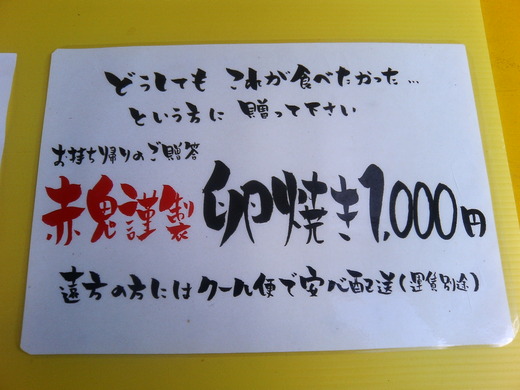 どうしても これが食べたかった…
という方に 贈って下さい
お持ち帰りのご贈答
赤鬼謹製 卵焼き1,000円
遠方の方にはクール便で安心配送(運賃別途)